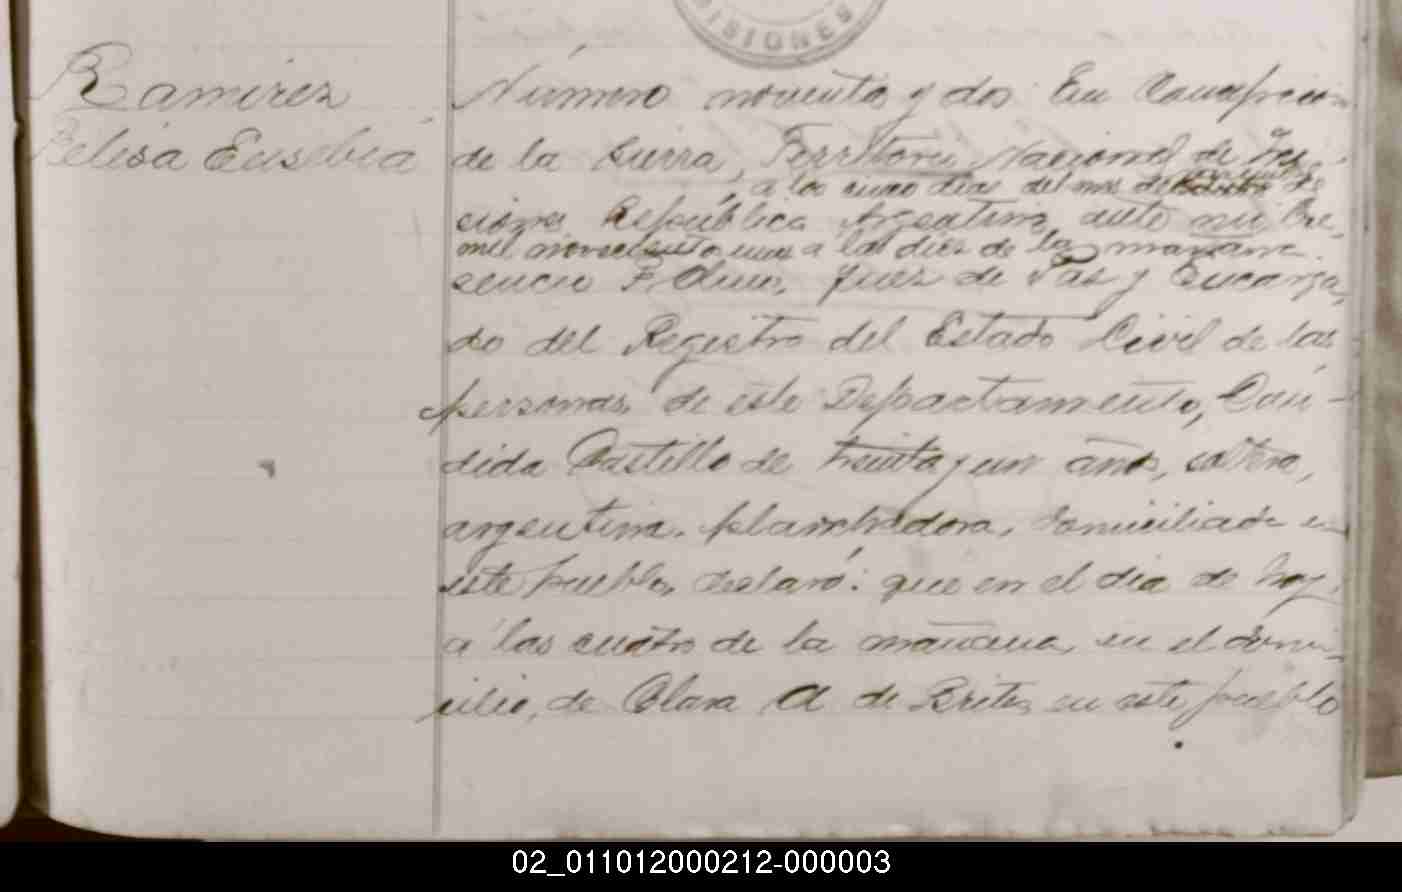 ISIONES
Ramirez
Belisa Eusebia
Número noventa y dos En Concepcion
de la Sierra, Territorio Nacional de Mi
a los cinco dias del mes de de
siones República Argentina, ante mi
mil novecientos uno a las diez de la mañana
sencio F. Juez de Paz y Encarga
do del Registro del Estado Civil de las
personas, de este Departamento, Cán-
dida Castillo de treinta y un años, soltera,
argentina, planchadora, domiciliada en
este pueblo, declaró: que en el dia de hoy,
a las cuatro de la mañana, en el domi-
cilio, de Clara A de Britez en este pueblo
02_011012000212-000003